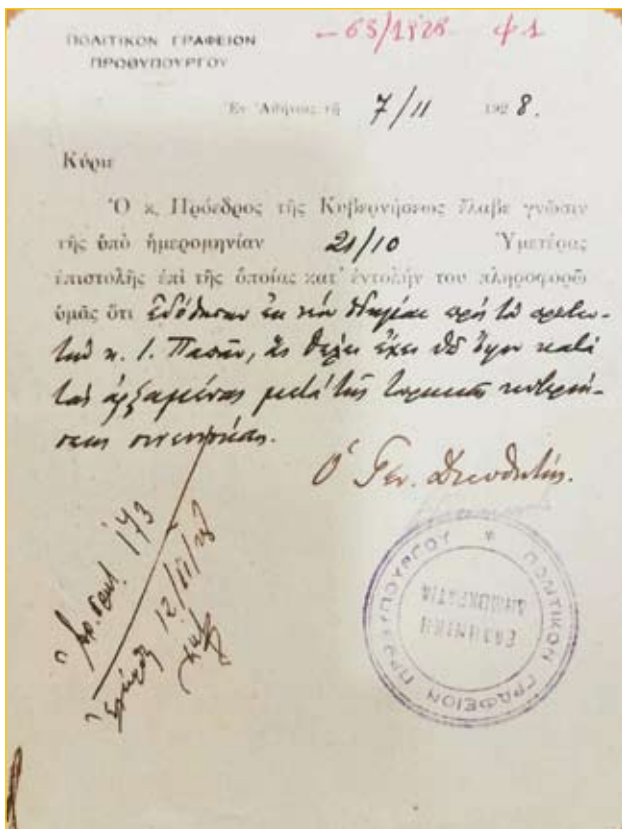 ΠΟΛΙΤΙΚΟΝ ΓΡΑΦΕΙΟΝ
ΠΡΩΘΥΠΟΥΡΓΟΥ
— 63/1928 φ1
Ἐν Ἀθήναις τῇ 7/11 1928.
Κύριε
Ὁ κ. Πρόεδρος τῆς Κυβερνήσεως ἔλαβε γνῶσιν
τῆς ὑπὸ ἡμερομηνίαν 21/10 Ὑμετέρας
ἐπιστολῆς ἐπὶ τῆς ὁποίας κατ' ἐντολήν του πληροφορῶ
ὑμᾶς ὅτι ἐδόθησαν ἐκ νέου ὁδηγίαι πρὸς τὸν
κ. Ι. Παπᾶν, ἃς θέλει ἔχει ὑπ' ὄψιν κατὰ
τὰς ἀρξαμένας μετὰ τῆς τουρκικῆς κυβερνή-
σεως συνεννοήσεις.
Ὁ Γεν. Διευθυντής.
173
12/11/28
ΠΟΛΙΤΙΚΟΝ ΓΡΑΦΕΙΟΝ ΠΡΩΘΥΠΟΥΡΓΟΥ
ΕΛΛΗΝΙΚΗ
ΔΗΜΟΚΡΑΤΙΑ